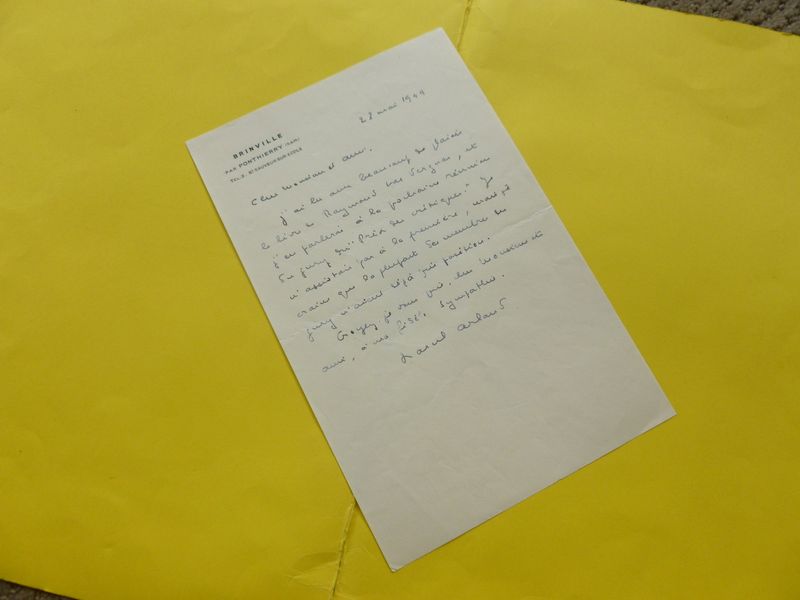 28 mai 1949
BRINVILLE
PAR PONTHIERRY (S&M)
TEL. 2. ST SAUVEUR-SUR-ECOLE
Cher Monsieur et ami,
J'ai lu avec beaucoup de plaisir
le livre de Raymond Las Vergnas, et
j'en parlerai à la prochaine réunion
du jury du "Prix des critiques". Je
n'assistais pas à la première, mais je
crains que la plupart des membres du
jury n'aient déjà pris position.
Croyez, je vous prie, cher Monsieur et
ami, à ma fidèle sympathie.
Marcel Arland